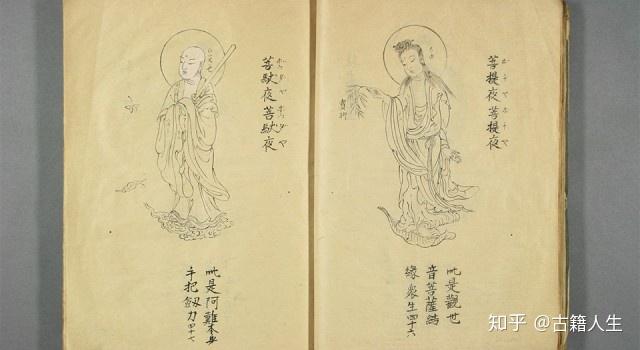 菩提夜菩提夜
此是觀世
音菩薩結
緣衆生四十六
菩馱夜菩馱夜
此是阿難本身
手把釼刀四十七
知乎 @古籍人生